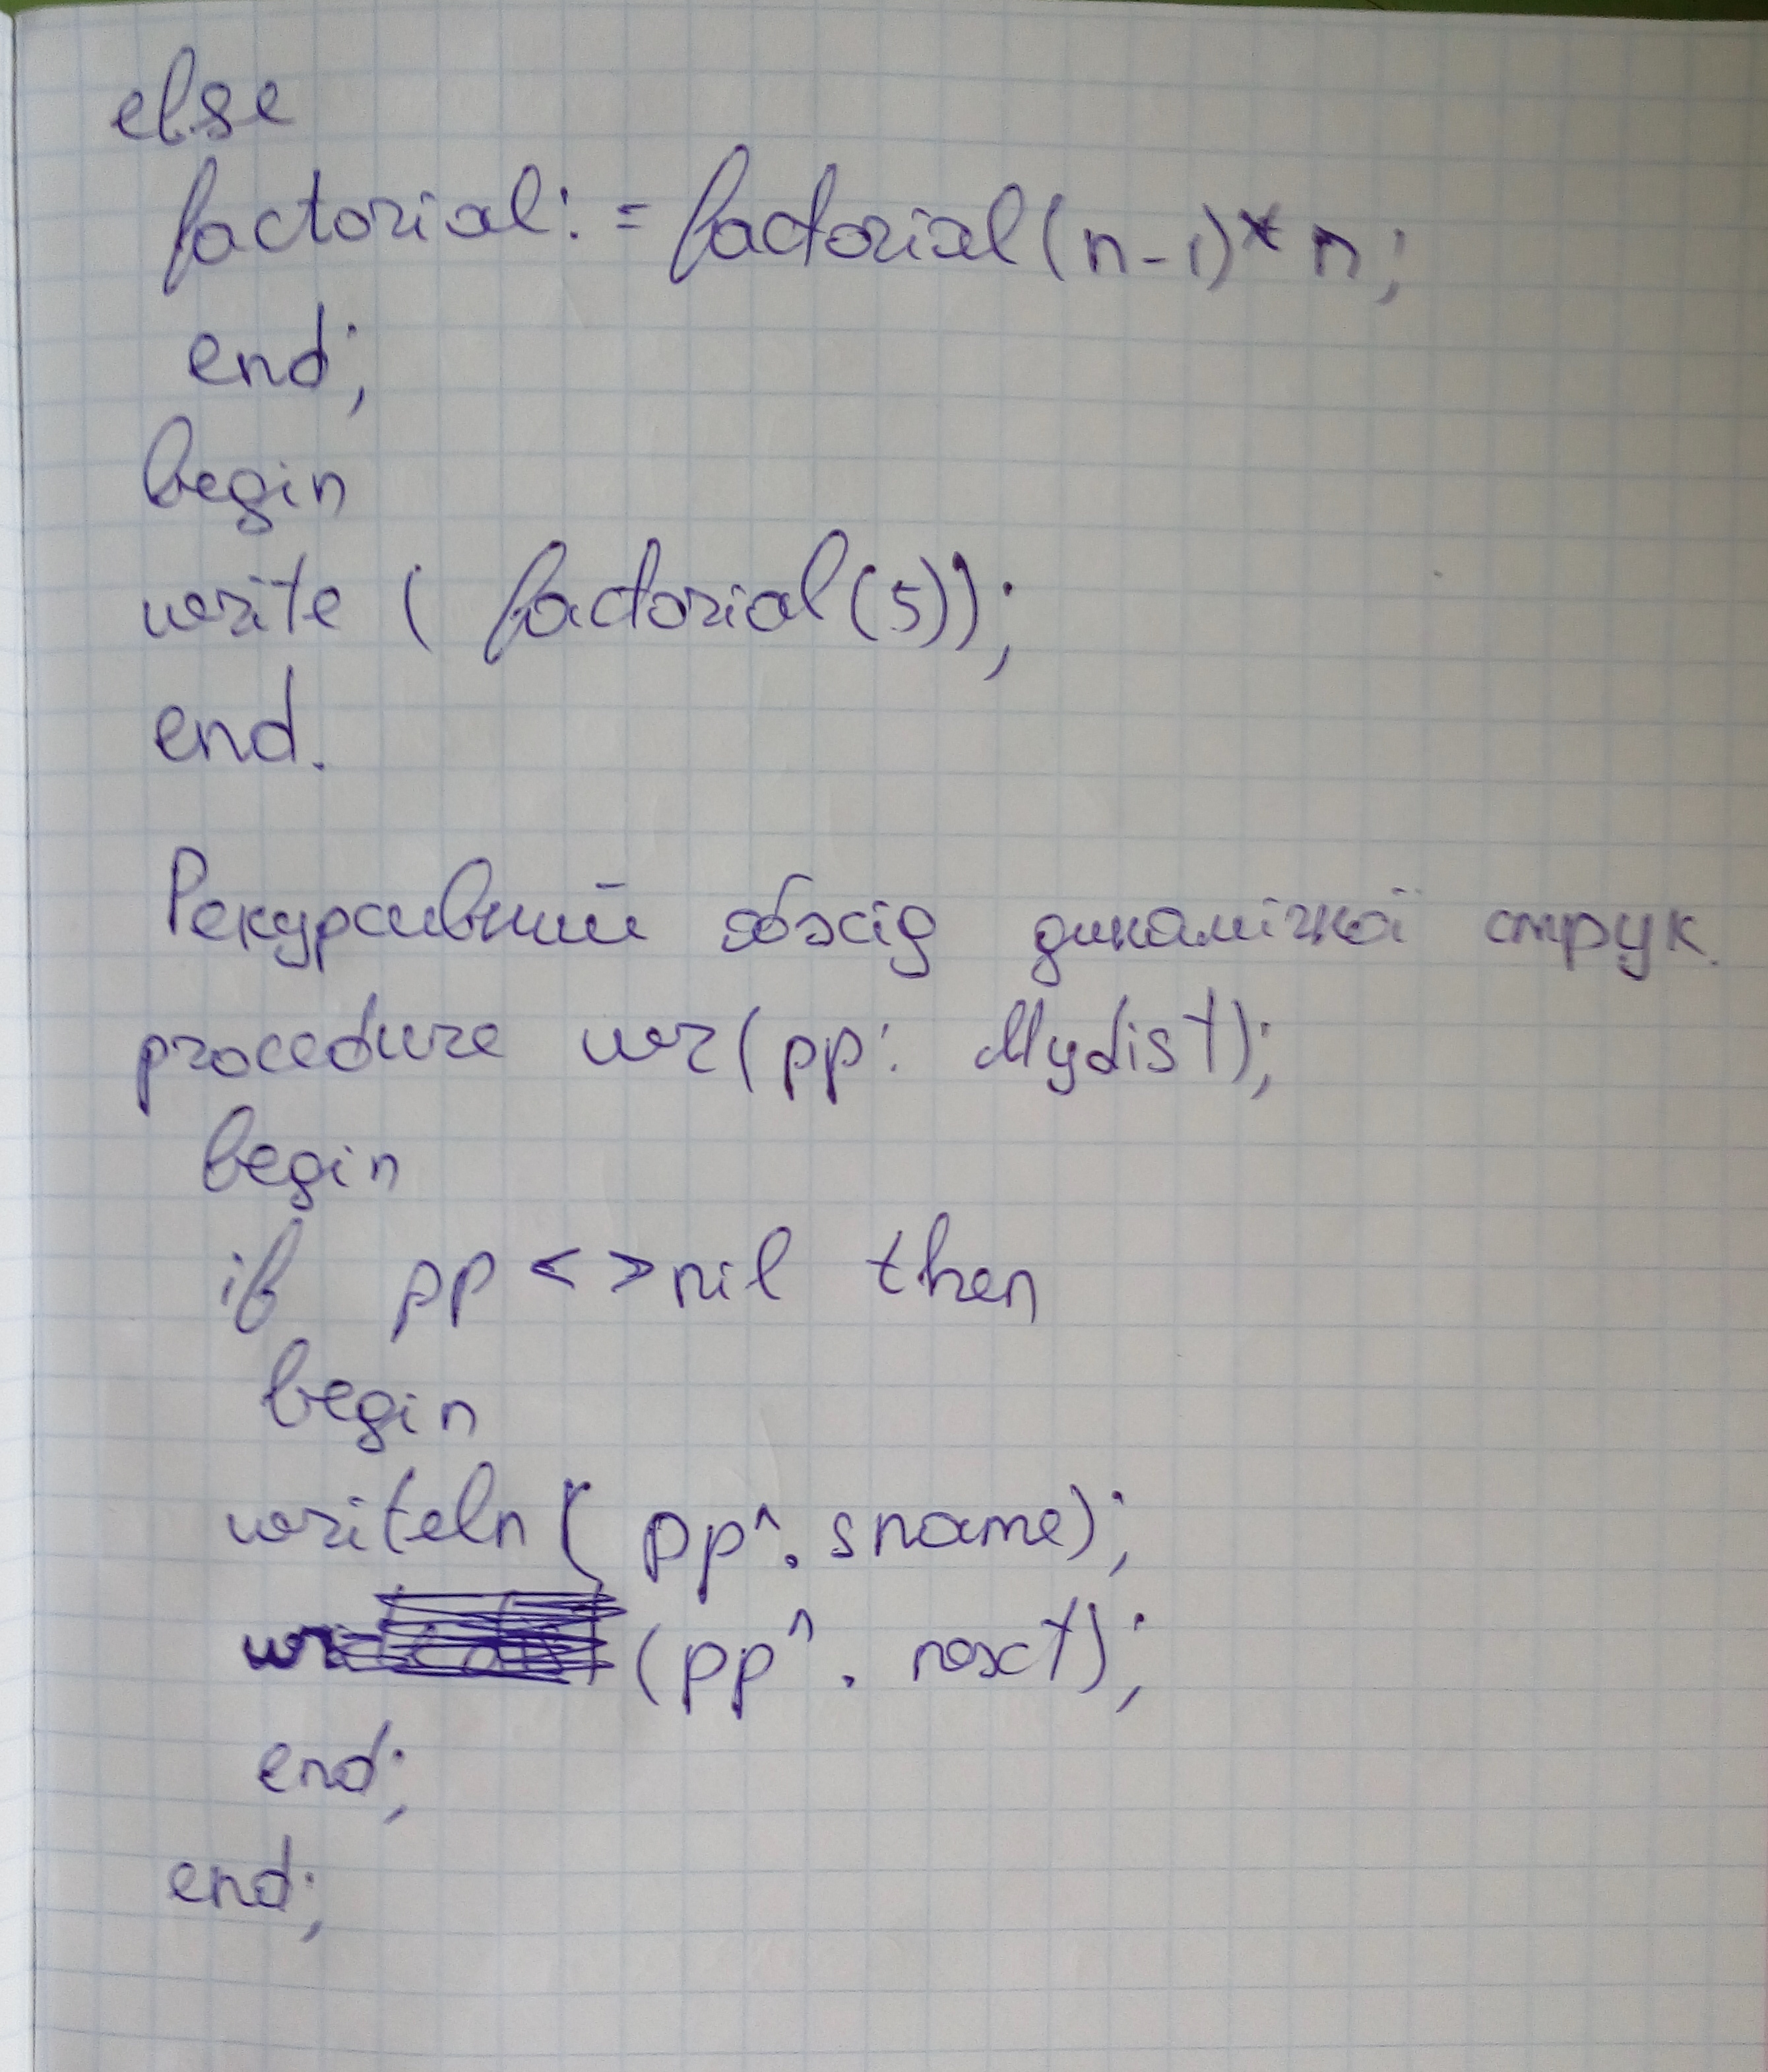 else
factorial := factorial(n-1)*n;
end;
begin
write ( factorial(5));
end.
Рекурсивний обхід динамічної струк.
procedure wr(pp: Mydist);
begin
if pp <> nil then
begin
writeln( pp^. sname);
wr (pp^. next);
end;
end;